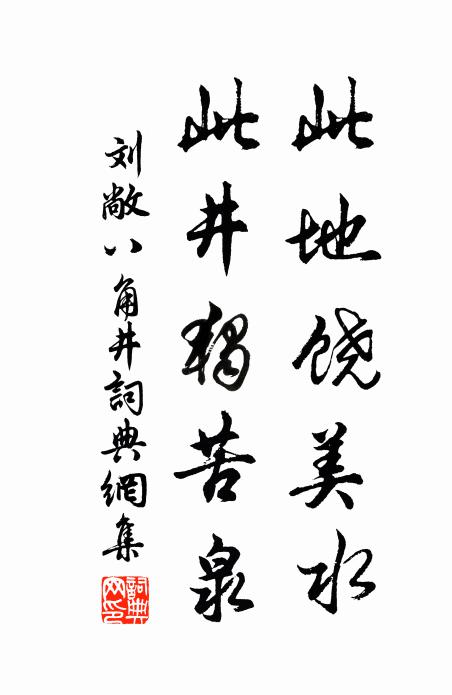 此地饶美水
此井獨苦泉
刘敞八角井詞典網集
詞典网印